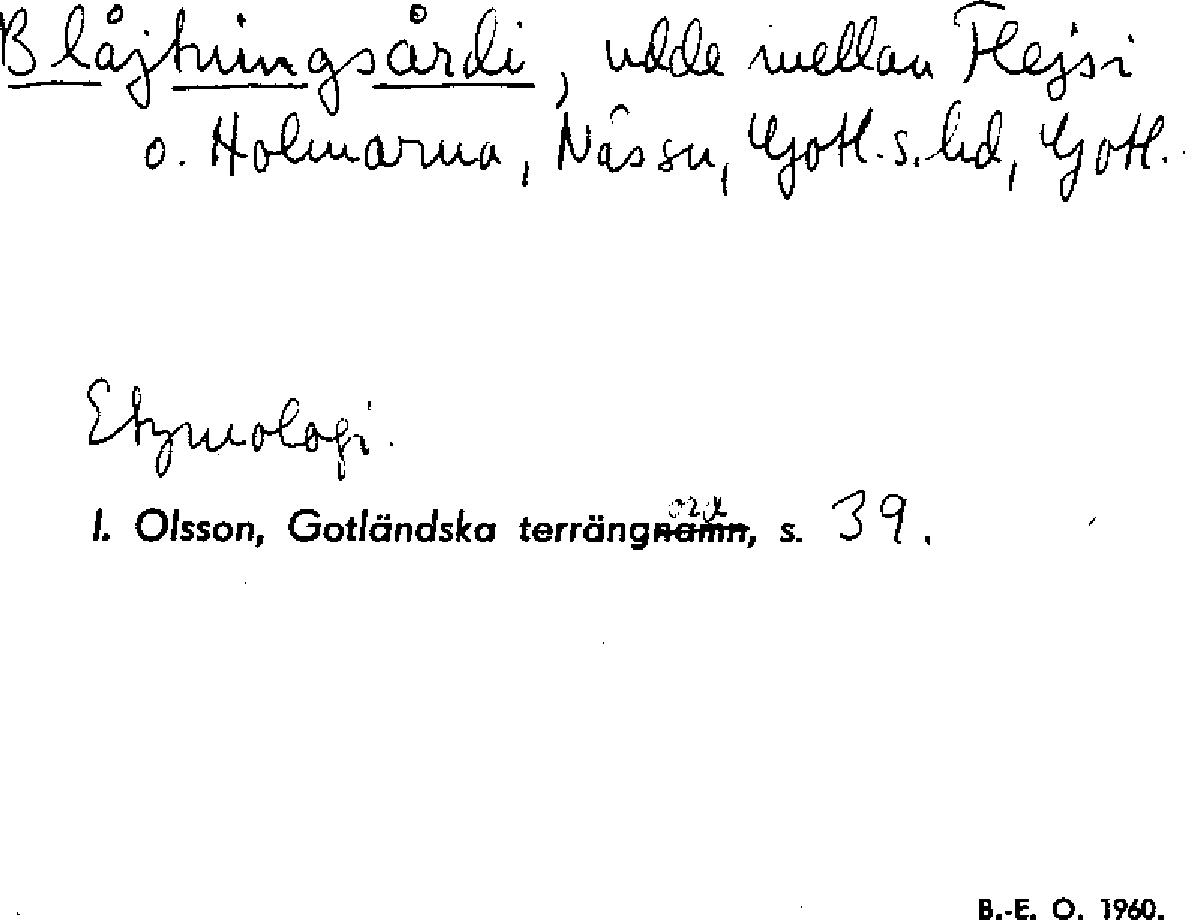 Blåjtningsårdi, udde mellan Flejsi
o. Holmarna, Näs sn, Gotl. s. hd, Gotl.
Etymologi.
I. Olsson, Gotländska terrängnamn ord, s. 39.
B.-E. O. 1960.